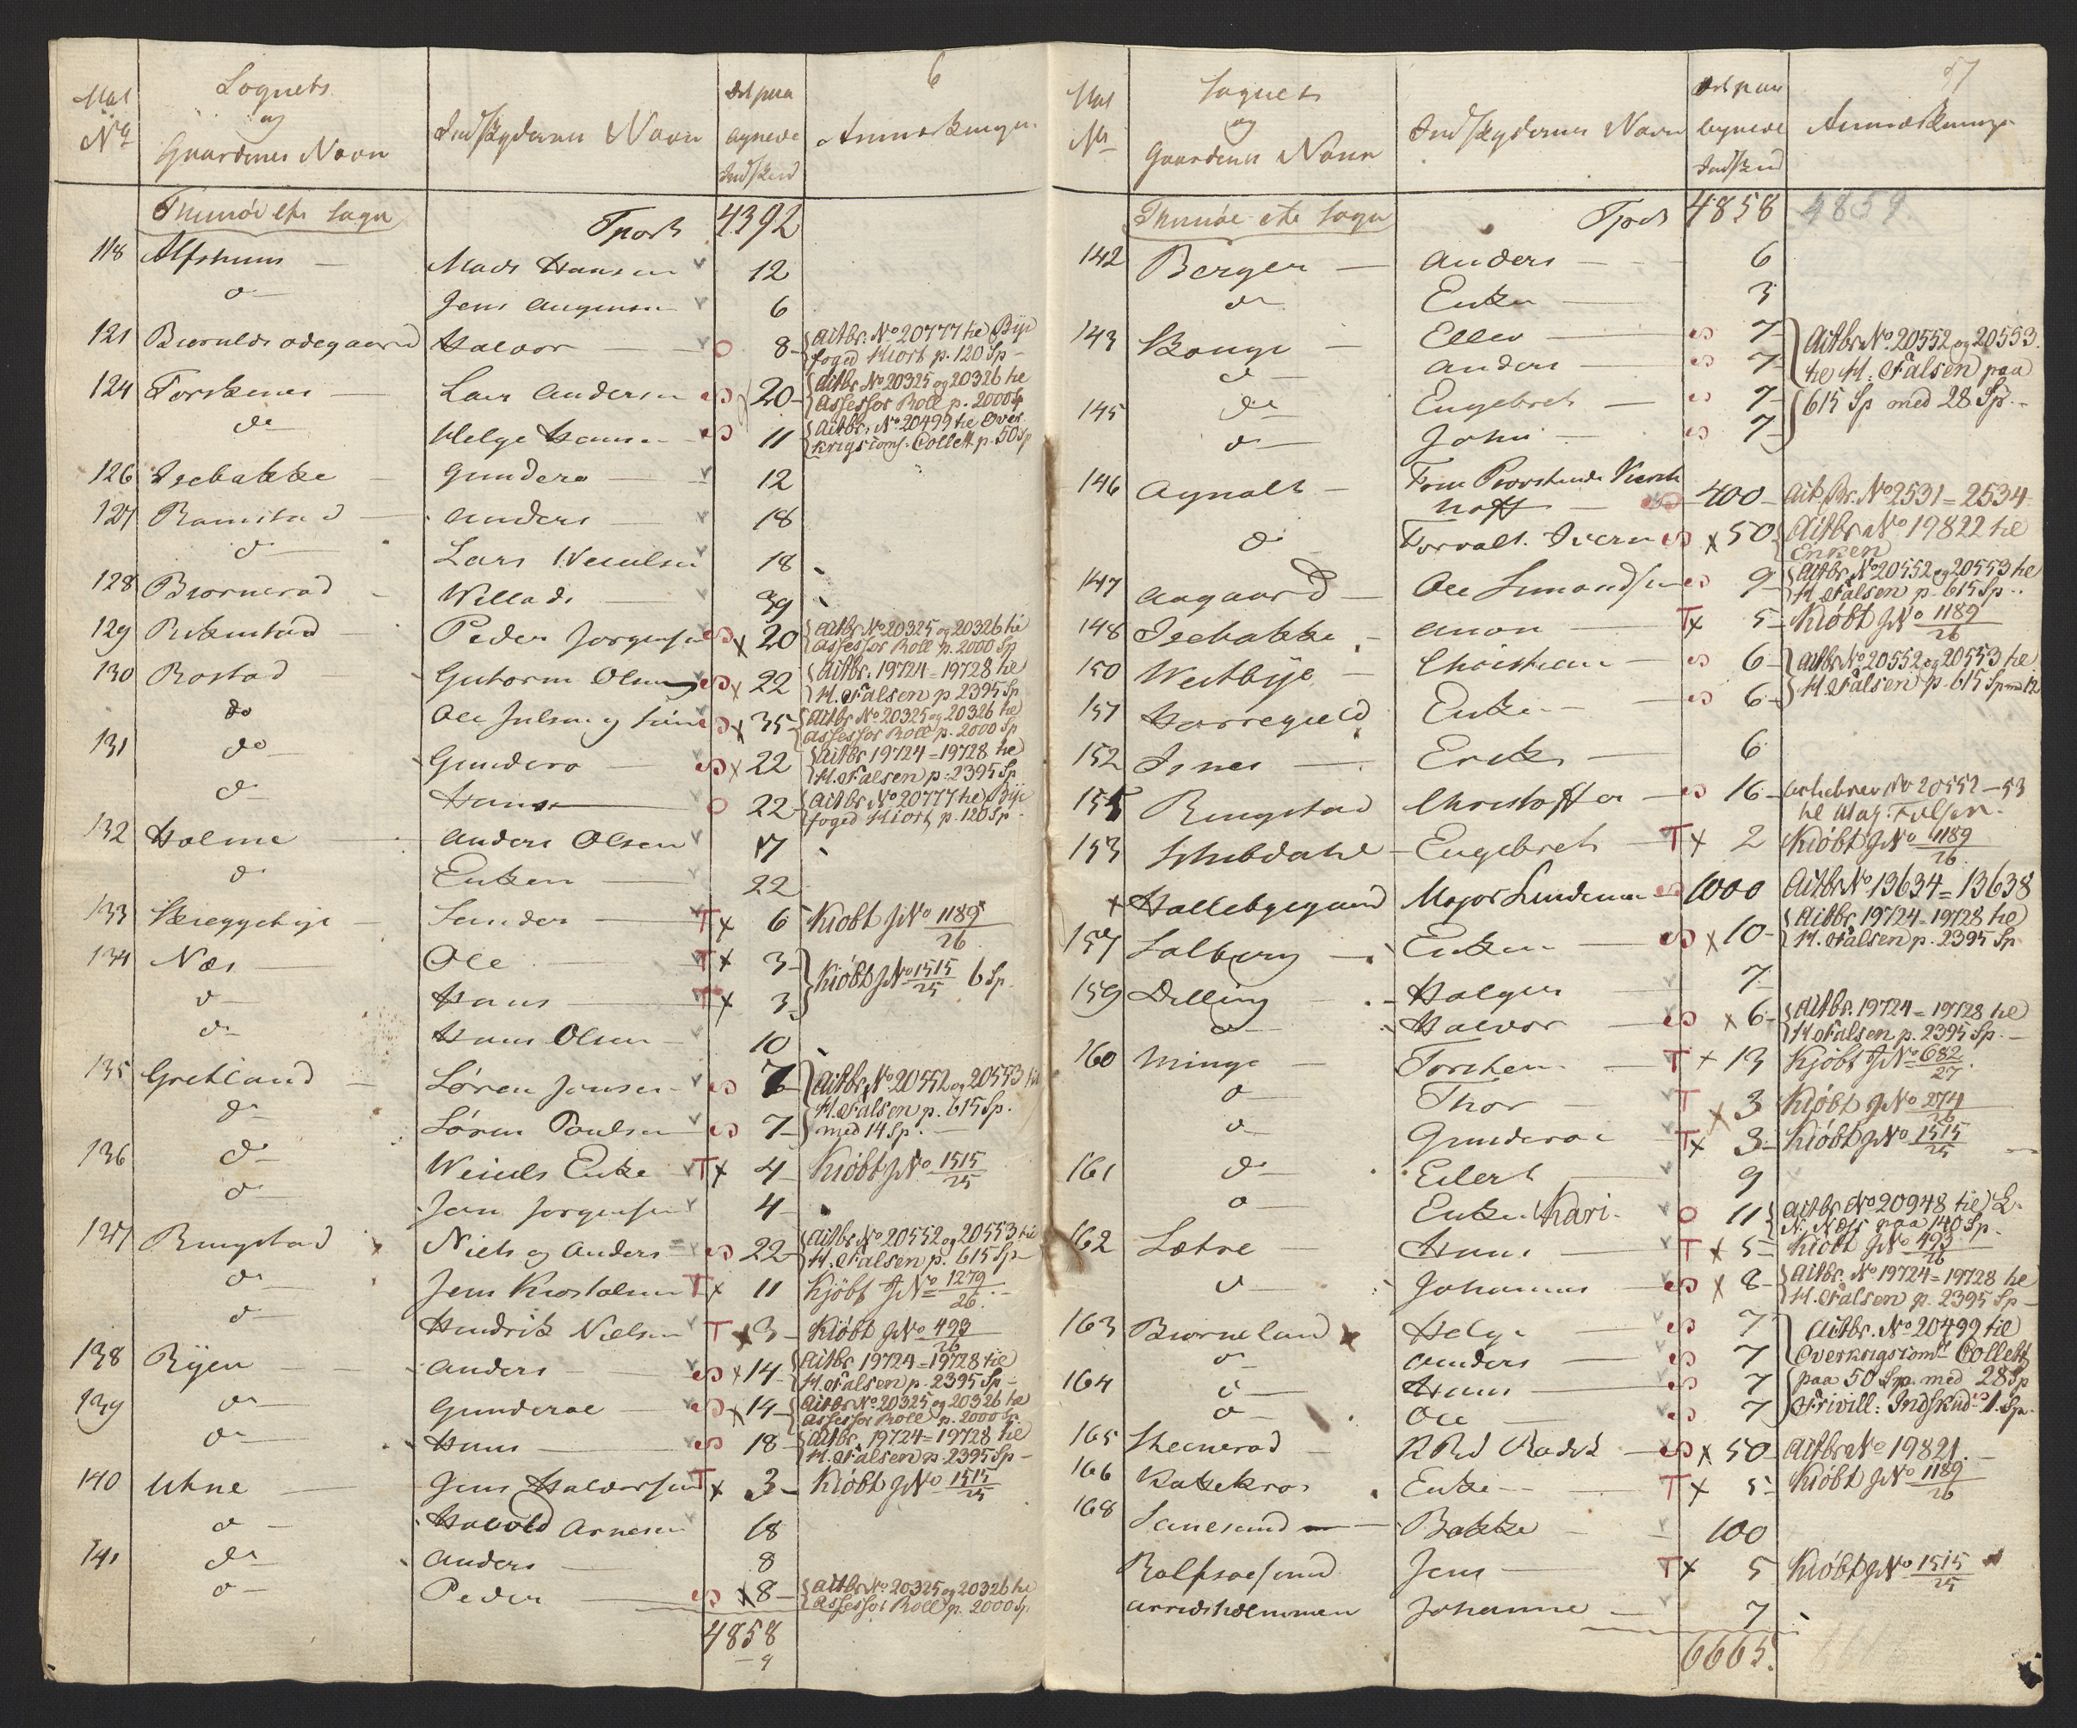 6
Mat
No
Sognets
og
Gaardenes Navn
Indskydernes Navn
Det paa
lignede
Indskud
Anmærkninger
Thunøe etc Sogn
Tport 4392
118 Alfshuus — Mads Hansen 12
do — Jens Augensen 6
121 Biørulds ødegaard Halvor — o 8 Actbr. No 20777 til Bye
foged Hiort p. 120 Sp —
124 Torskenes — Lars Andersen 20 Actbr No 20325 og 20326 til
Assessor Roll p. 2000 Sp
do Helge Hansen 11 Actbr. No 20499 til Over
krigscoms. Collett p. 50 Sp
126 Isebakke — Gundero — 12
127 Ramstad — Anders — 18
do — Lars Weielsen 18
128 Biørnerød — Willads — 39
129 Ramstad — Peder Jorgensen x 20 Actbr No 20325 og 20326 til
Assessor Roll p. 2000 Sp
130 Rostad — Gutorm Olsen x 22 Actbr. 19724 = 19728 til
H. Falsen p. 2395 Sp
do Ole Julsen og x 35 Actbr No 20325 og 20326 til
Assessor Roll p. 2000 Sp
131 do — Gundero — x 22 Actbr 19724 = 19728 til
H. Falsen p. 2395 Sp
do — Hans — o 22 Actbr No 20777 til Bye
foged Hiort p. 120 Sp —
132 Holme — Anders Olsen 17
do Enken — 22
133 Skieggebye — Sander — T x 6 Kiøbt J No 1189/26
134 Næs — Ole — T x 3
Kiøbt J No 1515/25 6 Sp.
do — Hans — T x 3
do — Hans Olsen — 10
135 Gretland — Søren Jensen 7 Actbr. No 20552 og 20553 til
H. Falsen p. 615 Sp.
do — Søren Poulsen 7 med 14 Sp. —
136 do — Weiels Enke T x 4 Kiøbt J No 1515/25
do — Jens Jorgensen 4
137 Ringstad Niels og Anders = 22 Actbr. No 20552 og 20553 til
H. Falsen p. 615 Sp —
do — Jens Krostolsen T x 11 Kjöbt J No 1279/26. —
do — Hendrik Nielsen T x 3 Kiøbt J No 493/26
138 Ryen — Anders — x 14 Actbr 19724 = 19728 til
H. Falsen p. 2395 Sp —
139 do — Gunderoe — x 14 Actbr No 20325 og 20326 til
Assessor Roll p. 2000 Sp
do — Hans — 18 Actbr. 19724 = 19728 til
H. Falsen p. 2395 Sp —
140 Uhne — Jens Halvorsen T x 3 Kiøbt J No 1515/25
do — Harold Arnesen 18
141 do — Anders — 8
do — Peder — x 8 Actbr. No 20325 og 20326 til
Assessor Roll p. 2000 Sp.
4858
9
7
Mat
No
Sognets
og
Gaardenes Navn
Indskydernes Navn
Det paa
lignede
Indskud
Anmærkninger
Thunøe etc Sogn
Tport 4858 4859.
142 Berger — Anders — 6
do Enken — 3
143 Bouge — Ellev — 7 Actbr No 20552 og 20553.
do Anders — 7 til H. Falsen paa
145 do Engebret — 7 615 Sp med 28 Sp. —
do — John — 7
146 Agnalt — Frue Provstinde Kierck
hoff — 400 — Act. Br. No 2531 = 2534
do Forvalt. Iversen x 50 Actbr No 19822 til
Enken
147 Aagaard — Ole Simondsen 9 Actbr. No 20552 og 20553 til
H. Falsen p. 615 Sp —
148 Isebakke — Anon — T x 5 Kiøbt J No 1189/26
150 Westbye — Christian — 6 Actbr No 20552 og 20553 til
H. Falsen p. 615 Sp m 12
151 Horregield Enken — 6
152 Isnes — Erik — 6
155 Ringstad Christoffer — 16 Actiebrev No 20552 — 53
til Mag: Falsen.
153 Skibdahl — Engebret — T x 2 Kiøbt J No 1189/26
x Hallebyegaard Major Lindeman 1000 Actbr No 13634 = 13638
157 Solberg — Enken — x 10 Actbr. 19724 = 19728 til
H. Falsen p. 2395 Sp
159 Dilling — Holger 7
do — Halvor — x 6 Actbr. 19724 = 19728 til
H. Falsen p. 2395 Sp. —
160 Minge — Torsten — T x 13 Kjöbt J No 682/27.
do — Thor — T x 3 Kiøbt J No 274/26
do — Gunderoe T x 3 Kiøbt J No 1515/25
161 do — Eilert — 9
do — Enken Kari. o 11 Actbr No 20948 til L.
N. Næss paa 140 Sp. —
162 Lætre — Hans — T x 5 Kiøbt J No 493/26
do — Johannes — x 8 Actbr. No 19724 = 19728 til
H. Falsen p. 2395 Sp —
163 Biørneland Helge — 7 Actbr. No 20499 til
do — Anders — 7 Overkrigscom. Collett
164 do — Hans — 7 paa 50 Sp. med 28 Sp
do — Ole — 7 Frivill: Indskud 1. Sp.
165 Skinnerød — x 50 Actbr No 19821. —
166 Kakekros Enke — T x 5 Kiøbt J No 1189/26
168 Sanesund — Bakke — 100
Rolfsøesund Jens — T x 5 Kiøbt J No 1515/25
Johanne — 7
6665.